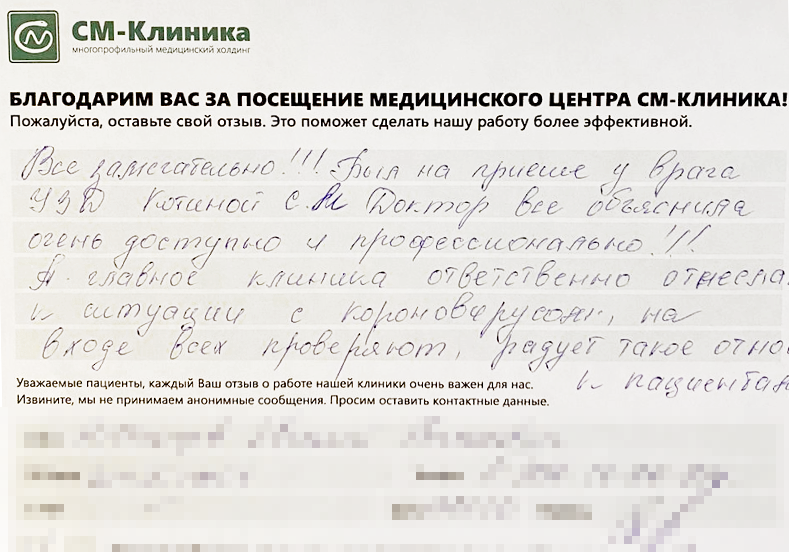 СМ-Клиника
многопрофильный медицинский холдинг
БЛАГОДАРИМ ВАС ЗА ПОСЕЩЕНИЕ МЕДИЦИНСКОГО ЦЕНТРА СМ-КЛИНИКА!
Пожалуйста, оставьте свой отзыв. Это поможет сделать нашу работу более эффективной.
Все замечательно!!! Был на приеме у врача
УЗД Котиной С.М Доктор все объяснила
очень доступно и профессионально!!!
А главное клиника ответственно отнесла
к ситуации с короновирусом, на
входе всех проверяют, радует такое отно
к пациентам
Уважаемые пациенты, каждый Ваш отзыв о работе нашей клиники очень важен для нас.
Извините, мы не принимаем анонимные сообщения. Просим оставить контактные данные.